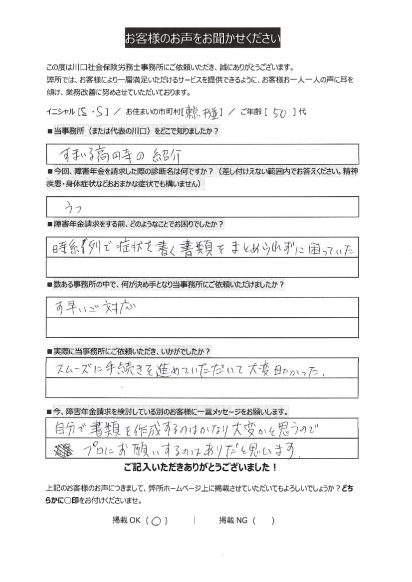 お客様のお声をお聞かせください
この度は川口社会保険労務士事務所にご依頼いただき、誠にありがとうございます。
弊所では、お客様により一層満足いただけるサービスを提供できるように、お客様お一人一人の声に耳を
傾け、業務改善に努めさせていただいております。
イニシャル [S・S] / お住まいの市町村 [] / ご年齢 [50] 代
■当事務所（または代表の川口）をどこで知りましたか？
すまいる高円寺の紹介
■今回、障害年金を請求した際の診断名は何ですか？（差し付けえない範囲内でお答えください。精神
疾患・身体症状などおおまかな症状でも構いません）
うつ
■障害年金請求をする前、どのようなことでお困りでしたか？
時系列で症状を書く書類をまとめられずに困っていた
■数ある事務所の中で、何が決め手となり当事務所にご依頼いただけましたか？
す早いご対応
■実際に当事務所にご依頼いただき、いかがでしたか？
スムーズに手続きを進めていただいて大変助かった.
■今、障害年金請求を検討している別のお客様に一言メッセージをお願いします。
自分で書類を作成するのはかなり大変かと思うので
プロにお願いするのはありだと思います.
ご記入いただきありがとうございました！
上記のお客様のお声につきまして、弊所ホームページ上に掲載させていただいてもよろしいでしょうか？どち
らかに○印をお付けくださいませ。
掲載 OK （○） | 掲載 NG （ ）